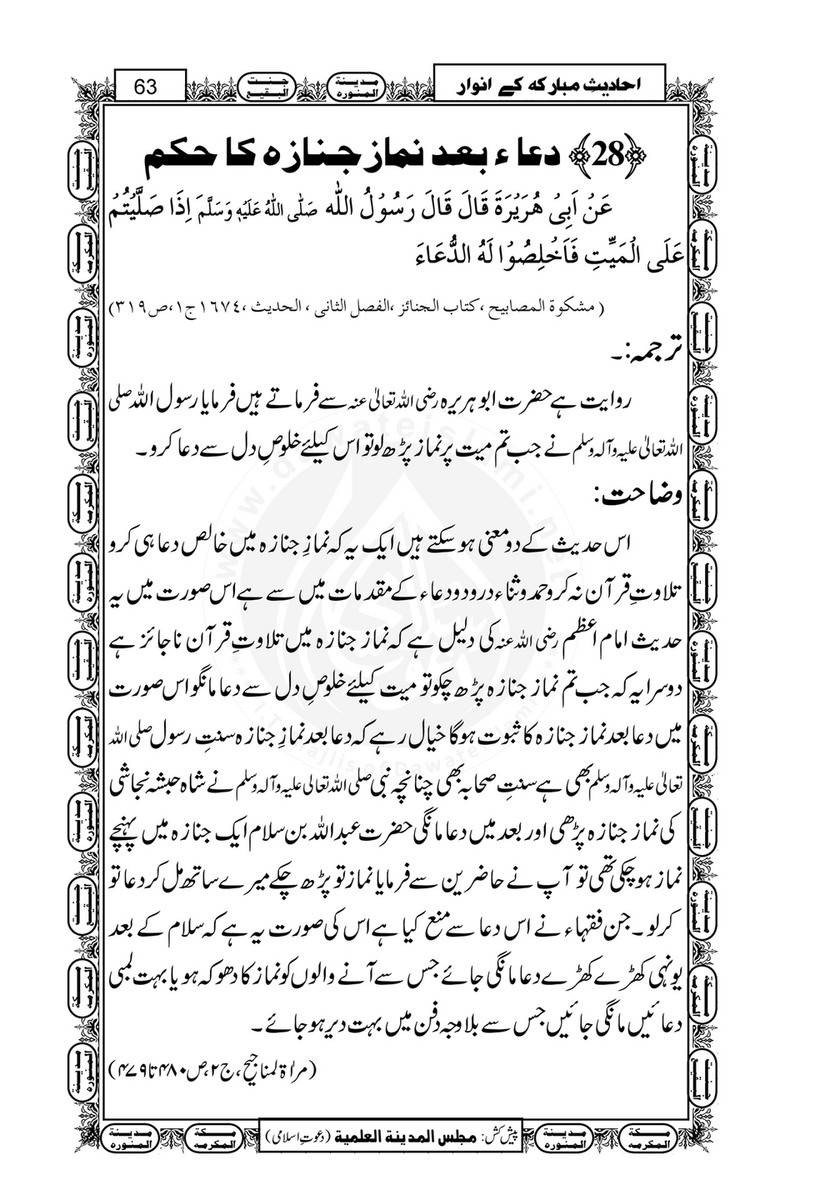 احادیث مبارکہ کے انوار
مدینة المنوره
جنت البقیع
63
﴿28﴾ دعاء بعد نماز جنازہ کا حکم
عَنْ اَبِیْ هُرَیْرَةَ قَالَ قَالَ رَسُوْلُ اللّٰه صَلَّی اللّٰهُ عَلَیْهِ وَسَلَّمَ اِذَا صَلَّیْتُمْ
عَلَی الْمَیِّتِ فَاَخْلِصُوْا لَهُ الدُّعَاءَ
( مشکوة المصابیح ،کتاب الجنائز ،الفصل الثانی ، الحدیث ،۱٦۷٤ ج۱،ص۳۱۹)
ترجمہ:۔
روایت ہے حضرت ابوہریرہ رضی اللہ تعالیٰ عنہ سے فرماتے ہیں فرمایا رسول اللہ صلی
اللہ تعالیٰ علیہ وآلہ وسلم نے جب تم میت پر نماز پڑھ لو تو اس کیلئے خلوصِ دل سے دعا کرو۔
وضاحت:
اس حدیث کے دو معنی ہوسکتے ہیں ایک یہ کہ نمازِ جنازہ میں خالص دعا ہی کرو
تلاوتِ قرآن نہ کرو حمد وثناء درود دعاء کے مقدمات میں سے ہے اس صورت میں یہ
حدیث امام اعظم رضی اللہ عنہ کی دلیل ہے کہ نماز جنازہ میں تلاوتِ قرآن ناجائز ہے
دوسرا یہ کہ جب تم نماز جنازہ پڑھ چکو تو میت کیلئے خلوصِ دل سے دعا مانگو اس صورت
میں دعا بعد نماز جنازہ کا ثبوت ہوگا خیال رہے کہ دعا بعد نمازِ جنازہ سنتِ رسول صلی اللہ
تعالیٰ علیہ وآلہ وسلم بھی ہے سنتِ صحابہ بھی چنانچہ نبی صلی اللہ تعالی علیہ وآلہ وسلم نے شاہ حبشہ نجاشی
کی نماز جنازہ پڑھی اور بعد میں دعا مانگی حضرت عبداللہ بن سلام ایک جنازہ میں پہنچے
نماز ہوچکی تھی تو آپ نے حاضرین سے فرمایا نماز تو پڑھ چکے میرے ساتھ مل کر دعا تو
کرلو۔ جن فقہاء نے اس دعا سے منع کیا ہے اس کی صورت یہ ہے کہ سلام کے بعد
یونہی کھڑے کھڑے دعا مانگی جائے جس سے آنے والوں کو نماز کا دھوکہ ہو یا بہت لمبی
دعائیں مانگی جائیں جس سے بلاوجہ دفن میں بہت دیر ہوجائے۔
(مراۃ المناجیح، ج۲،ص۴۸۰ تا ۴۷۹)
مکة المکرمہ
مدینة المنوره
پیش کش: مجلس المدینة العلمیة (دعوتِ اسلامی)
مکة المکرمہ
مدینة المنوره